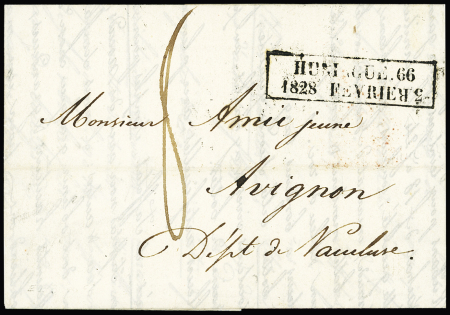 HUNINGUE.66
1828 FEVRIER 5
Monsieur Amic jeune
8
Avignon
Dép.t de Vaucluse.